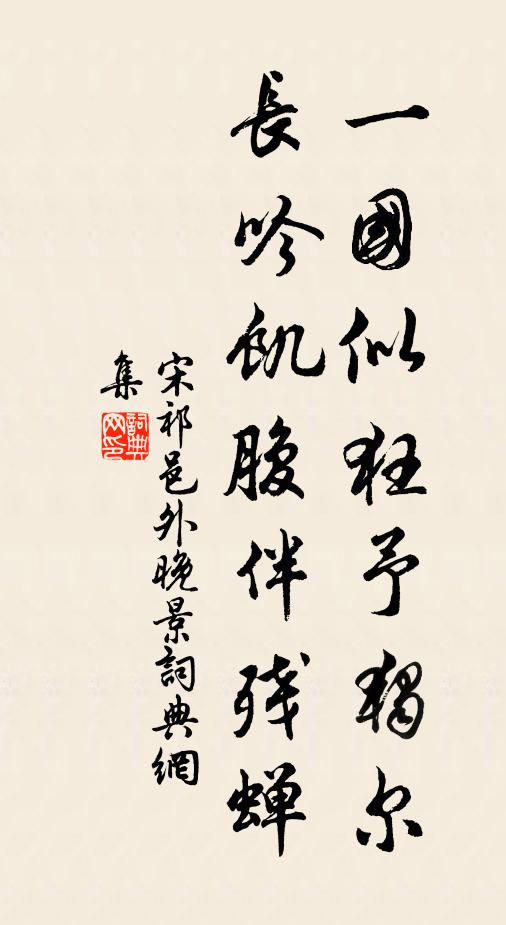 一國似狂予獨尔
長吟飢腹伴残蝉
宋祁邑外晚景詞典網
集
詞典網印